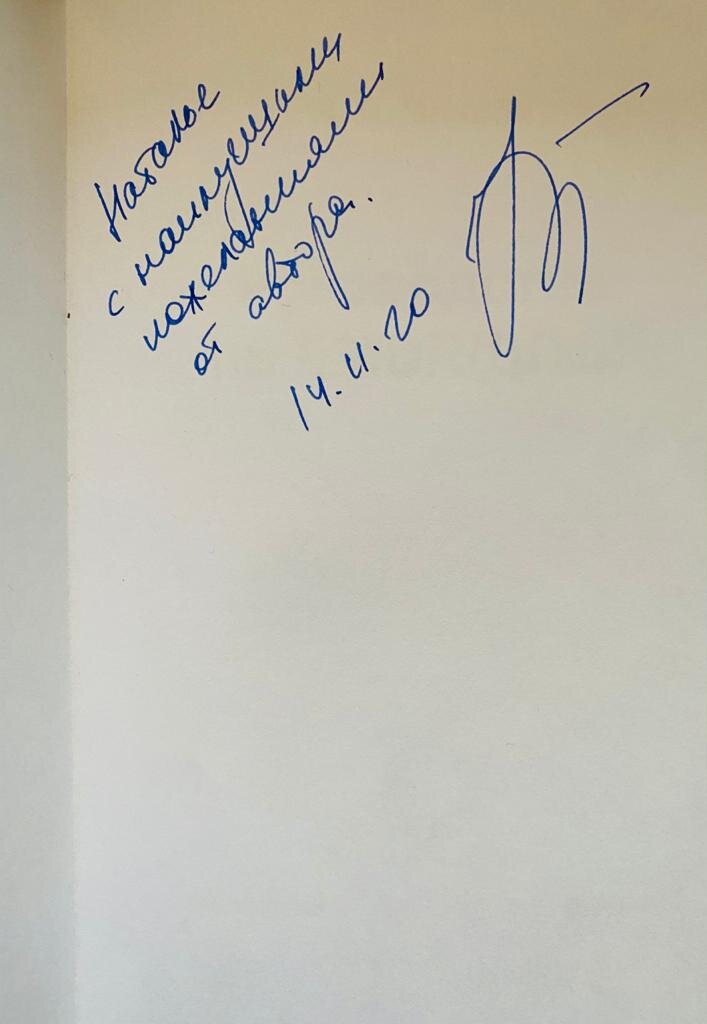 Наталье
с наилучшими
пожеланиями
от автора.
14.11.20